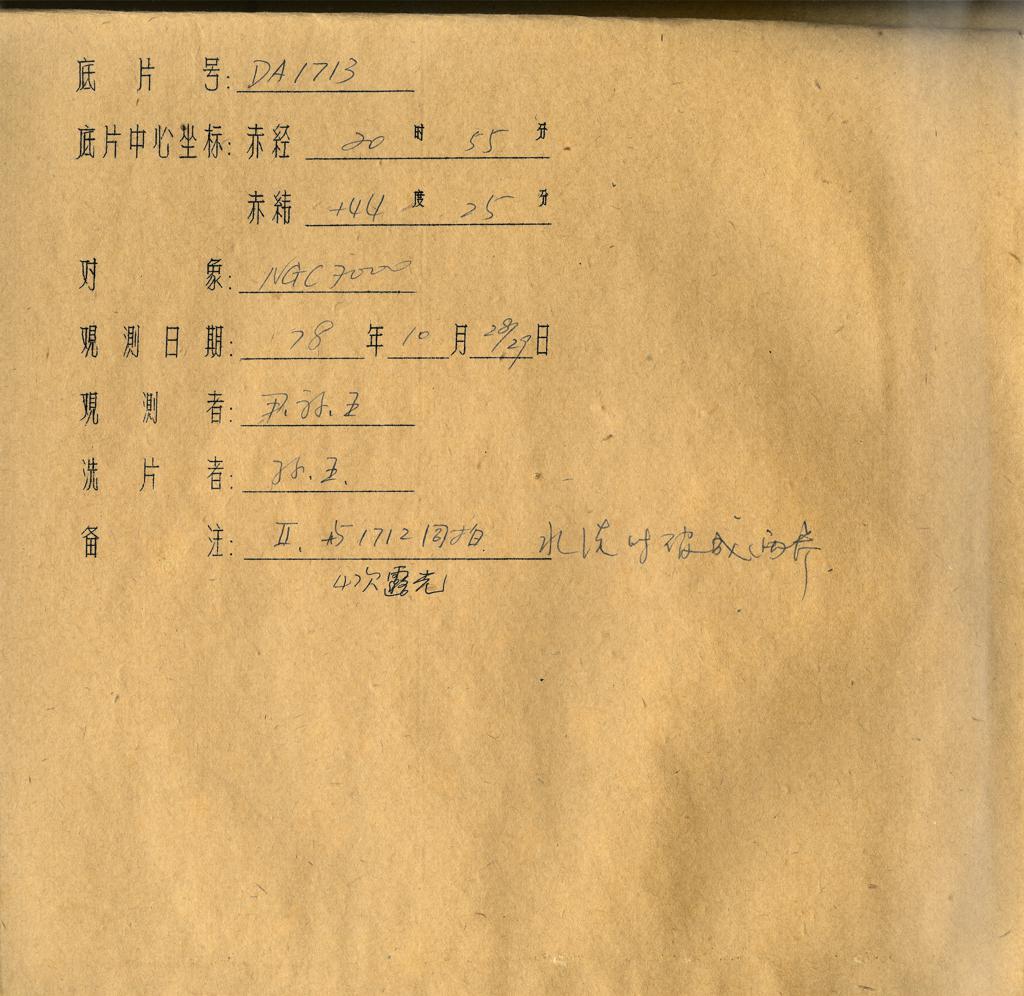 底片号: DA1713
底片中心坐标: 赤经 20 时 55 分
赤纬 +44 度 25 分
对象: NGC 7000
观测日期: 78 年 10 月 28/29 日
观测者: 尹.孙.王
洗片者: 孙.王.
备注: II. 与1712同拍 水洗时破成两片.
4次露光